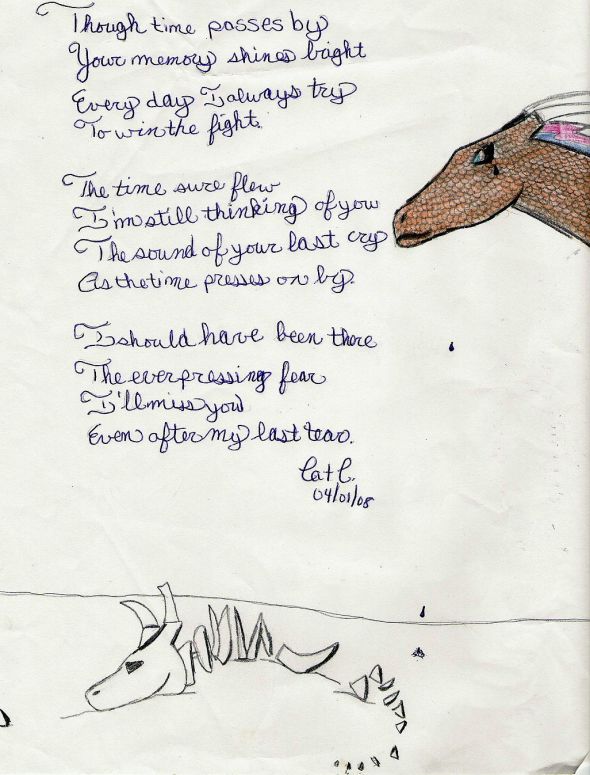 Though time passes by
Your memory shines bright
Every day I always try
To win the fight.
The time sure flew
I'm still thinking of you
The sound of your last cry
As the time presses on by.
I should have been there
The ever pressing fear
I'll miss you
Even after my last tear.
Cat C.
04/01/08